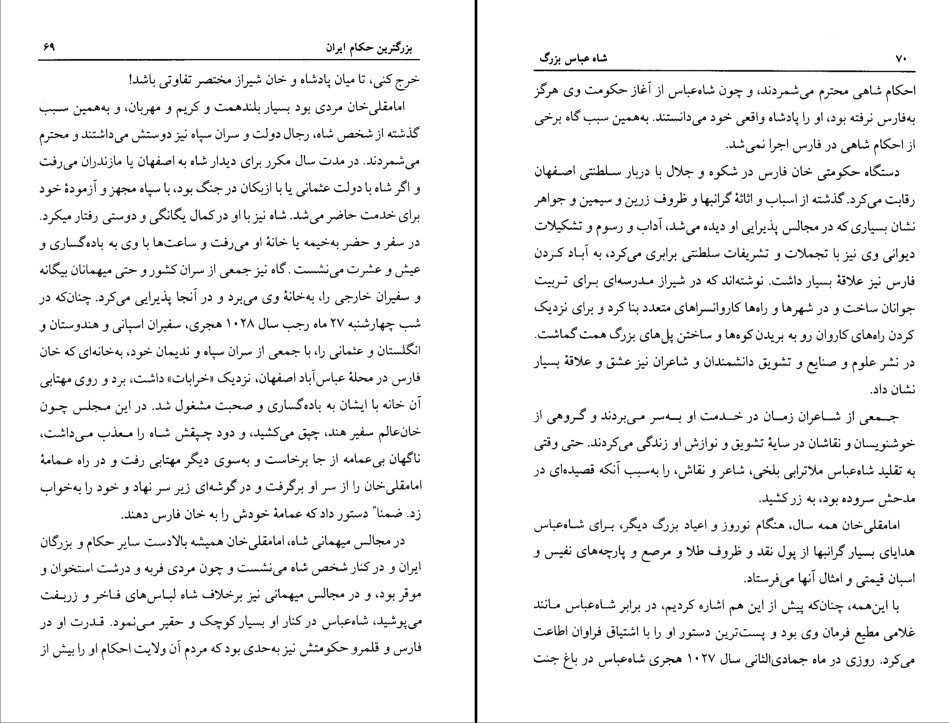 بزرگترین حکام ایران ۶۹
خرج کنی، تا میان پادشاه و خان شیراز مختصر تفاوتی باشد!
امامقلی‌خان مردی بود بسیار بلندهمت و کریم و مهربان، و به‌همین سبب
گذشته از شخص شاه، رجال دولت و سران سپاه نیز دوستش می‌داشتند و محترم
می‌شمردند. در مدت سال مکرر برای دیدار شاه به اصفهان یا مازندران می‌رفت
و اگر شاه با دولت عثمانی یا با ازبکان در جنگ بود، با سپاه مجهز و آزمودهٔ خود
برای خدمت حاضر می‌شد. شاه نیز با او در کمال یگانگی و دوستی رفتار میکرد.
در سفر و حضر به‌خیمه یا خانهٔ او می‌رفت و ساعت‌ها با وی به باده‌گساری و
عیش و عشرت می‌نشست. گاه نیز جمعی از سران کشور و حتی میهمانان بیگانه
و سفیران خارجی را، به‌خانهٔ وی می‌برد و در آنجا پذیرایی می‌کرد. چنان‌که در
شب چهارشنبه ۲۷ ماه رجب سال ۱۰۲۸ هجری، سفیران اسپانی و هندوستان و
انگلستان و عثمانی را، با جمعی از سران سپاه و ندیمان خود، به‌خانه‌ای که خان
فارس در محلهٔ عباس‌آباد اصفهان، نزدیک «خرابات» داشت، برد و روی مهتابی
آن خانه با ایشان به باده‌گساری و صحبت مشغول شد. در این مجلس چون
خان‌عالم سفیر هند، چپق می‌کشید، و دود چپقش شاه را معذب می‌داشت،
ناگهان بی‌عمامه از جا برخاست و به‌سوی دیگر مهتابی رفت و در راه عمامهٔ
امامقلی‌خان را از سر او برگرفت و در گوشه‌ای زیر سر نهاد و خود را به‌خواب
زد. ضمناً دستور داد که عمامهٔ خودش را به خان فارس دهند.
در مجالس میهمانی شاه، امامقلی‌خان همیشه بالادست سایر حکام و بزرگان
ایران و در کنار شخص شاه می‌نشست و چون مردی فربه و درشت استخوان و
موقر بود، و در مجالس میهمانی نیز برخلاف شاه لباس‌های فاخر و زربفت
می‌پوشید، شاه‌عباس در کنار او بسیار کوچک و حقیر می‌نمود. قدرت او در
فارس و قلمرو حکومتش نیز به‌حدی بود که مردم آن ولایت احکام او را بیش از
۷۰ شاه عباس بزرگ
احکام شاهی محترم می‌شمردند، و چون شاه‌عباس از آغاز حکومت وی هرگز
به‌فارس نرفته بود، او را پادشاه واقعی خود می‌دانستند. به‌همین سبب گاه برخی
از احکام شاهی در فارس اجرا نمی‌شد.
دستگاه حکومتی خان فارس در شکوه و جلال با دربار سلطنتی اصفهان
رقابت می‌کرد. گذشته از اسباب و اثاثهٔ گرانبها و ظروف زرین و سیمین و جواهر
نشان بسیاری که در مجالس پذیرایی او دیده می‌شد، آداب و رسوم و تشکیلات
دیوانی وی نیز با تجملات و تشریفات سلطنتی برابری می‌کرد، به آباد کردن
فارس نیز علاقهٔ بسیار داشت. نوشته‌اند که در شیراز مدرسه‌ای برای تربیت
جوانان ساخت و در شهرها و راه‌ها کاروانسراهای متعدد بنا کرد و برای نزدیک
کردن راه‌های کاروان رو به بریدن کوه‌ها و ساختن پل‌های بزرگ همت گماشت.
در نشر علوم و صنایع و تشویق دانشمندان و شاعران نیز عشق و علاقهٔ بسیار
نشان داد.
جمعی از شاعران زمان در خدمت او به‌سر می‌بردند و گروهی از
خوشنویسان و نقاشان در سایهٔ تشویق و نوازش او زندگی می‌کردند. حتی وقتی
به تقلید شاه‌عباس ملاترابی بلخی، شاعر و نقاش، را به‌سبب آنکه قصیده‌ای در
مدحش سروده بود، به زر کشید.
امامقلی‌خان همه سال، هنگام نوروز و اعیاد بزرگ دیگر، برای شاه‌عباس
هدایای بسیار گرانبها از پول نقد و ظروف طلا و مرصع و پارچه‌های نفیس و
اسبان قیمتی و امثال آنها می‌فرستاد.
با این‌همه، چنان‌که پیش از این هم اشاره کردیم، در برابر شاه‌عباس مانند
غلامی مطیع فرمان وی بود و پست‌ترین دستور او را با اشتیاق فراوان اطاعت
می‌کرد. روزی در ماه جمادی‌الثانی سال ۱۰۲۷ هجری شاه‌عباس در باغ جنت